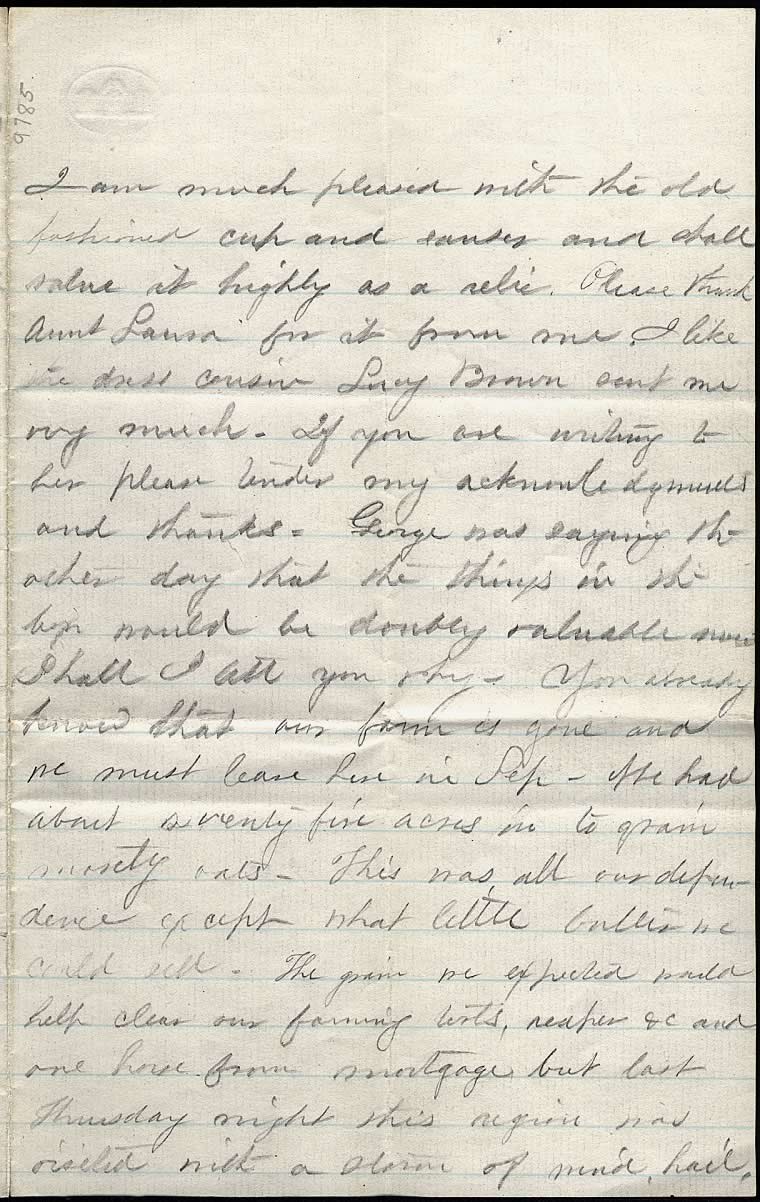 9785.
I am much pleased with the old
fashioned cup and sauser and shall
value it highly as a relic. Please thank
Aunt Laura for it from me. I like
the dress cousin Lucy Brown sent me
very much - If you are writing to
her please tender my acknowledgments
and thanks - George was saying the
other day that the things in the
box would be doubly valuable now
Shall I tell you why - You already
know that our farm is gone and
we must leave here in Sep - We had
about seventy five acres in to grain
mostly oats - This was all our depen-
dence except what little butter we
could sell - The grain we expected would
help clear our farming tools, reaper &c and
one horse from mortgage but last
Thursday night this region was
visited with a storm of wind, hail,